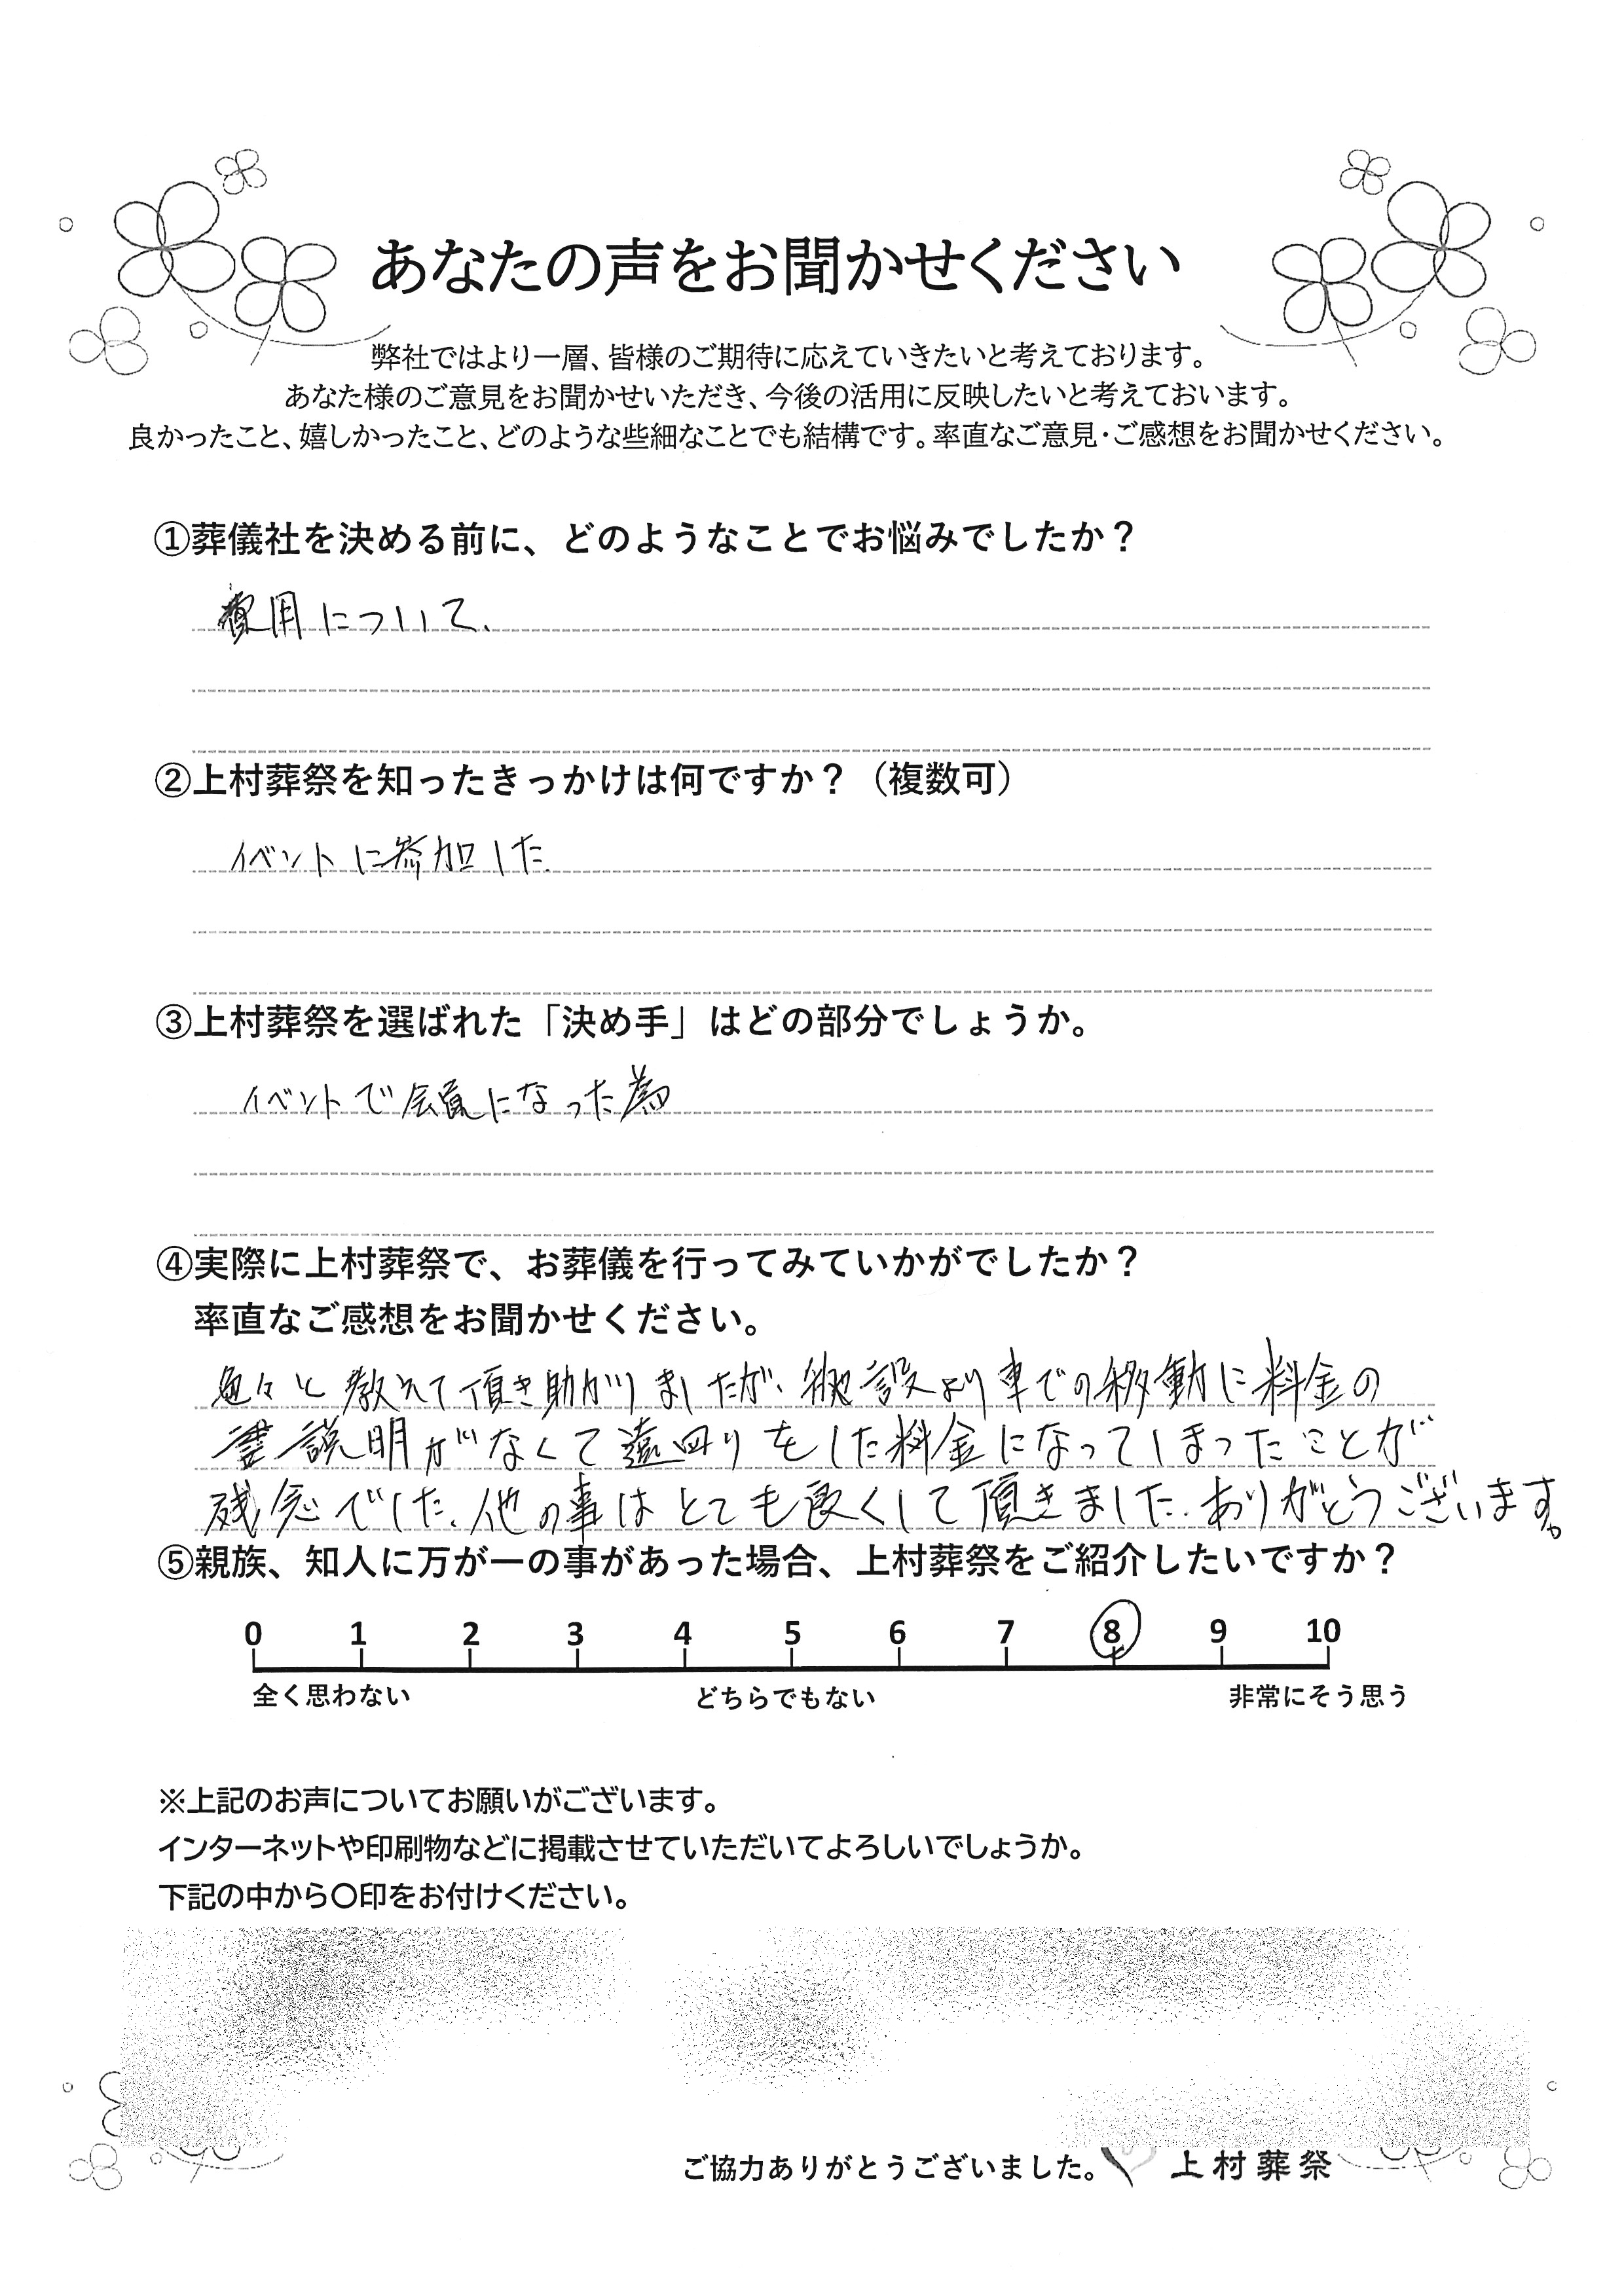 あなたの声をお聞かせください
弊社ではより一層、皆様のご期待に応えていきたいと考えております。
あなた様のご意見をお聞かせいただき、今後の活用に反映したいと考えておいます。
良かったこと、嬉しかったこと、どのような些細なことでも結構です。率直なご意見・ご感想をお聞かせください。
①葬儀社を決める前に、どのようなことでお悩みでしたか？
費用について.
②上村葬祭を知ったきっかけは何ですか？（複数可）
イベントに参加した.
③上村葬祭を選ばれた「決め手」はどの部分でしょうか。
イベントで会員になった為
④実際に上村葬祭で、お葬儀を行ってみていかがでしたか？
率直なご感想をお聞かせください。
色々と教えて頂き助かりましたが、施設より車での移動に料金の
説明がなくて遠回りをした料金になってしまったことが
残念でした.他の事はとても良くして頂きました.ありがとうございます。
⑤親族、知人に万が一の事があった場合、上村葬祭をご紹介したいですか？
0 1 2 3 4 5 6 7 8 9 10
全く思わない どちらでもない 非常にそう思う
※上記のお声についてお願いがございます。
インターネットや印刷物などに掲載させていただいてよろしいでしょうか。
下記の中から〇印をお付けください。
ご協力ありがとうございました。 上村葬祭